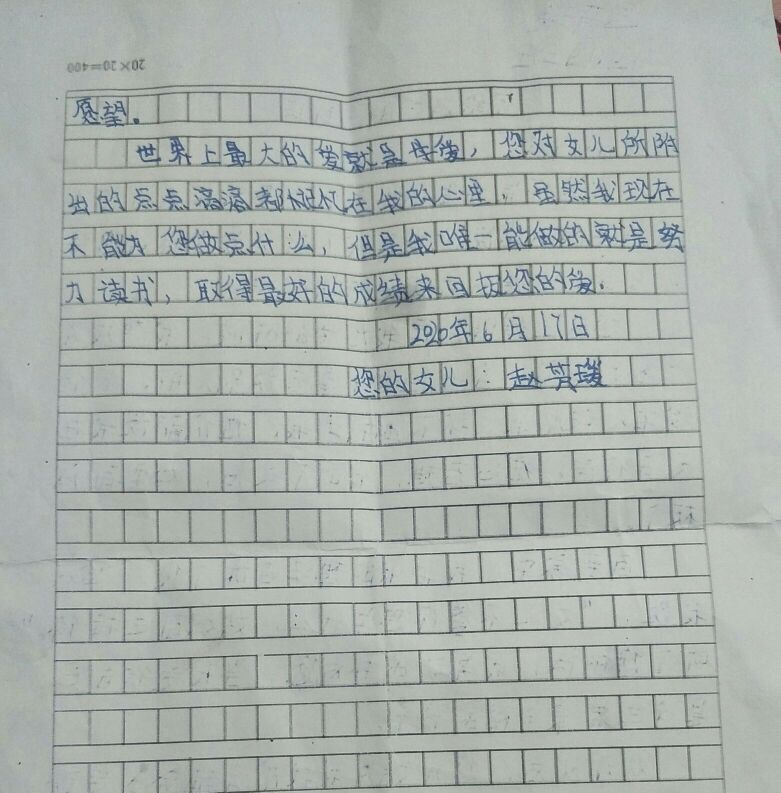 20×20=400
愿望。
世界上最大的爱就是母爱，您对女儿所附
出的点点滴滴都铭记在我的心里，虽然我现在
不能为您做点什么，但是我唯一能做的就是努
力读书，取得最好的成绩来回报您的爱.
2020年6月17日
您的女儿：赵芳瑗